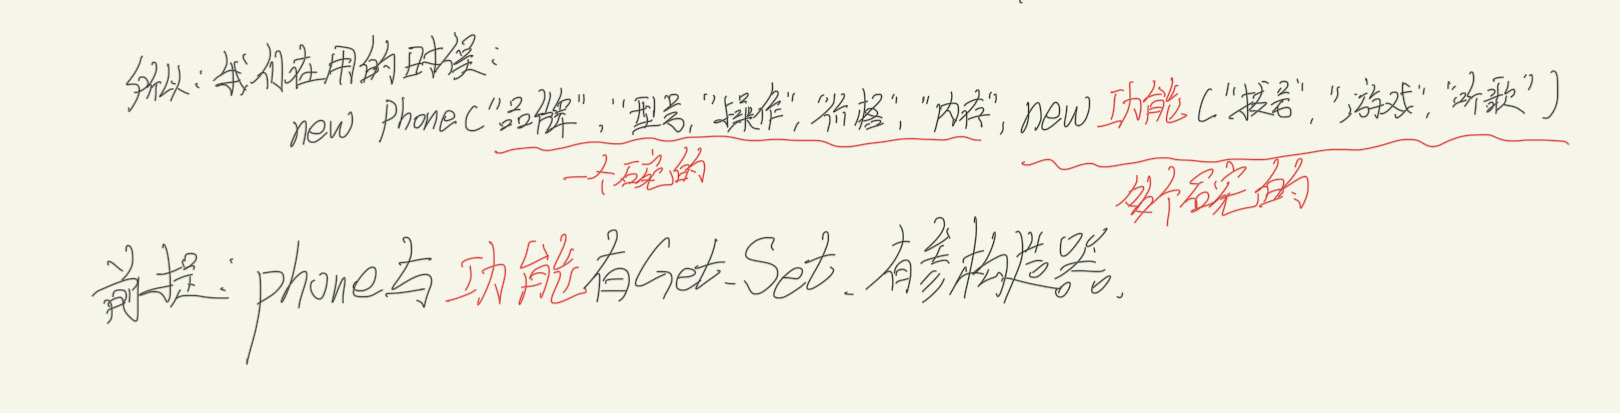 所以:我们在用的时候:
new Phone("品牌","型号,"操作","价格","内存",new 功能("拨号","游戏","听歌")
一个确定的
多个确定的
前提:phone与功能有Get.Set.有参构造器.